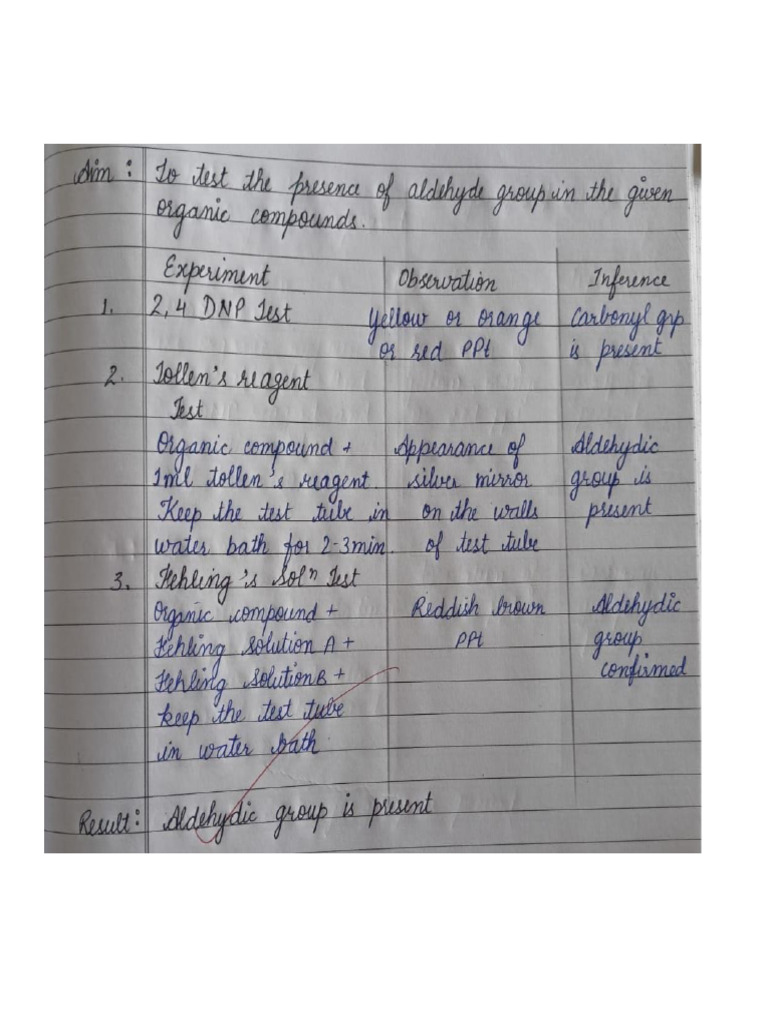 Aim: To test the presence of aldehyde group in the given
organic compounds.
Experiment Observation Inference
1. 2,4 DNP Test Yellow or orange Carbonyl grp
or red PPt is present
2. Tollen's reagent
Test
Organic compound + Appearance of Aldehydic
1ml tollen's reagent. silver mirror group is
Keep the test tube in on the walls present
water bath for 2-3min. of test tube
3. Fehling's Solⁿ Test
Organic compound + Reddish brown Aldehydic
Fehling solution A + PPt group
Fehling solution B + confirmed
keep the test tube
in water bath
Result: Aldehydic group is present